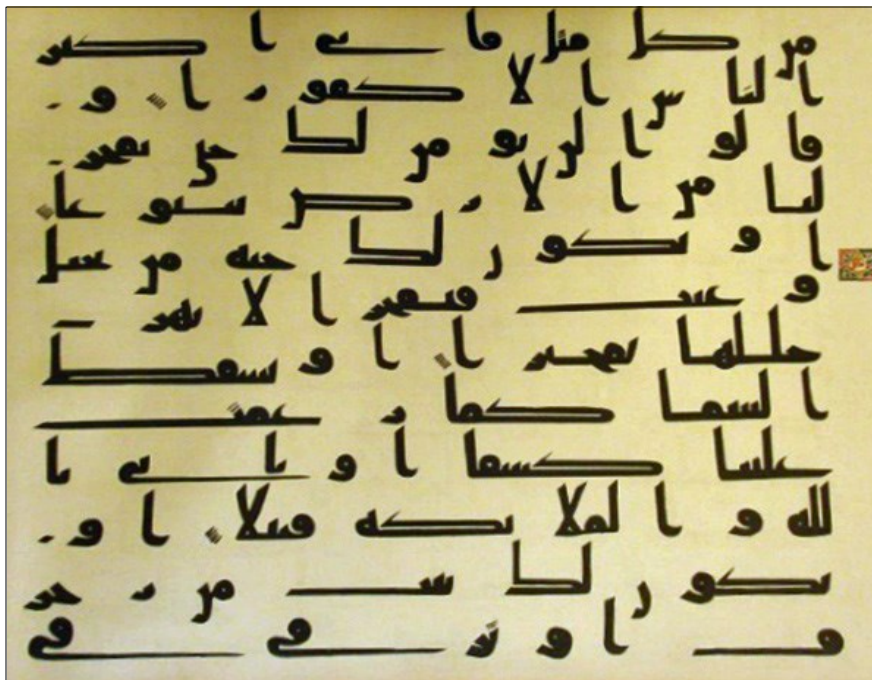 من كل مثل فابى اكثر
الناس الا كفورا و
قالوا لن نومن لك حتى تفجر
لنا من الارض ينبوعا
او تكون لك جنه من نخيل
و عنب فتفجر الانهر
خللها تفجيرا او تسقط
السما كما زعمت
علينا كسفا او تاتى با
لله و الملئكه قبيلا او
يكون لك بيت من زخر
ف او ترقى فى